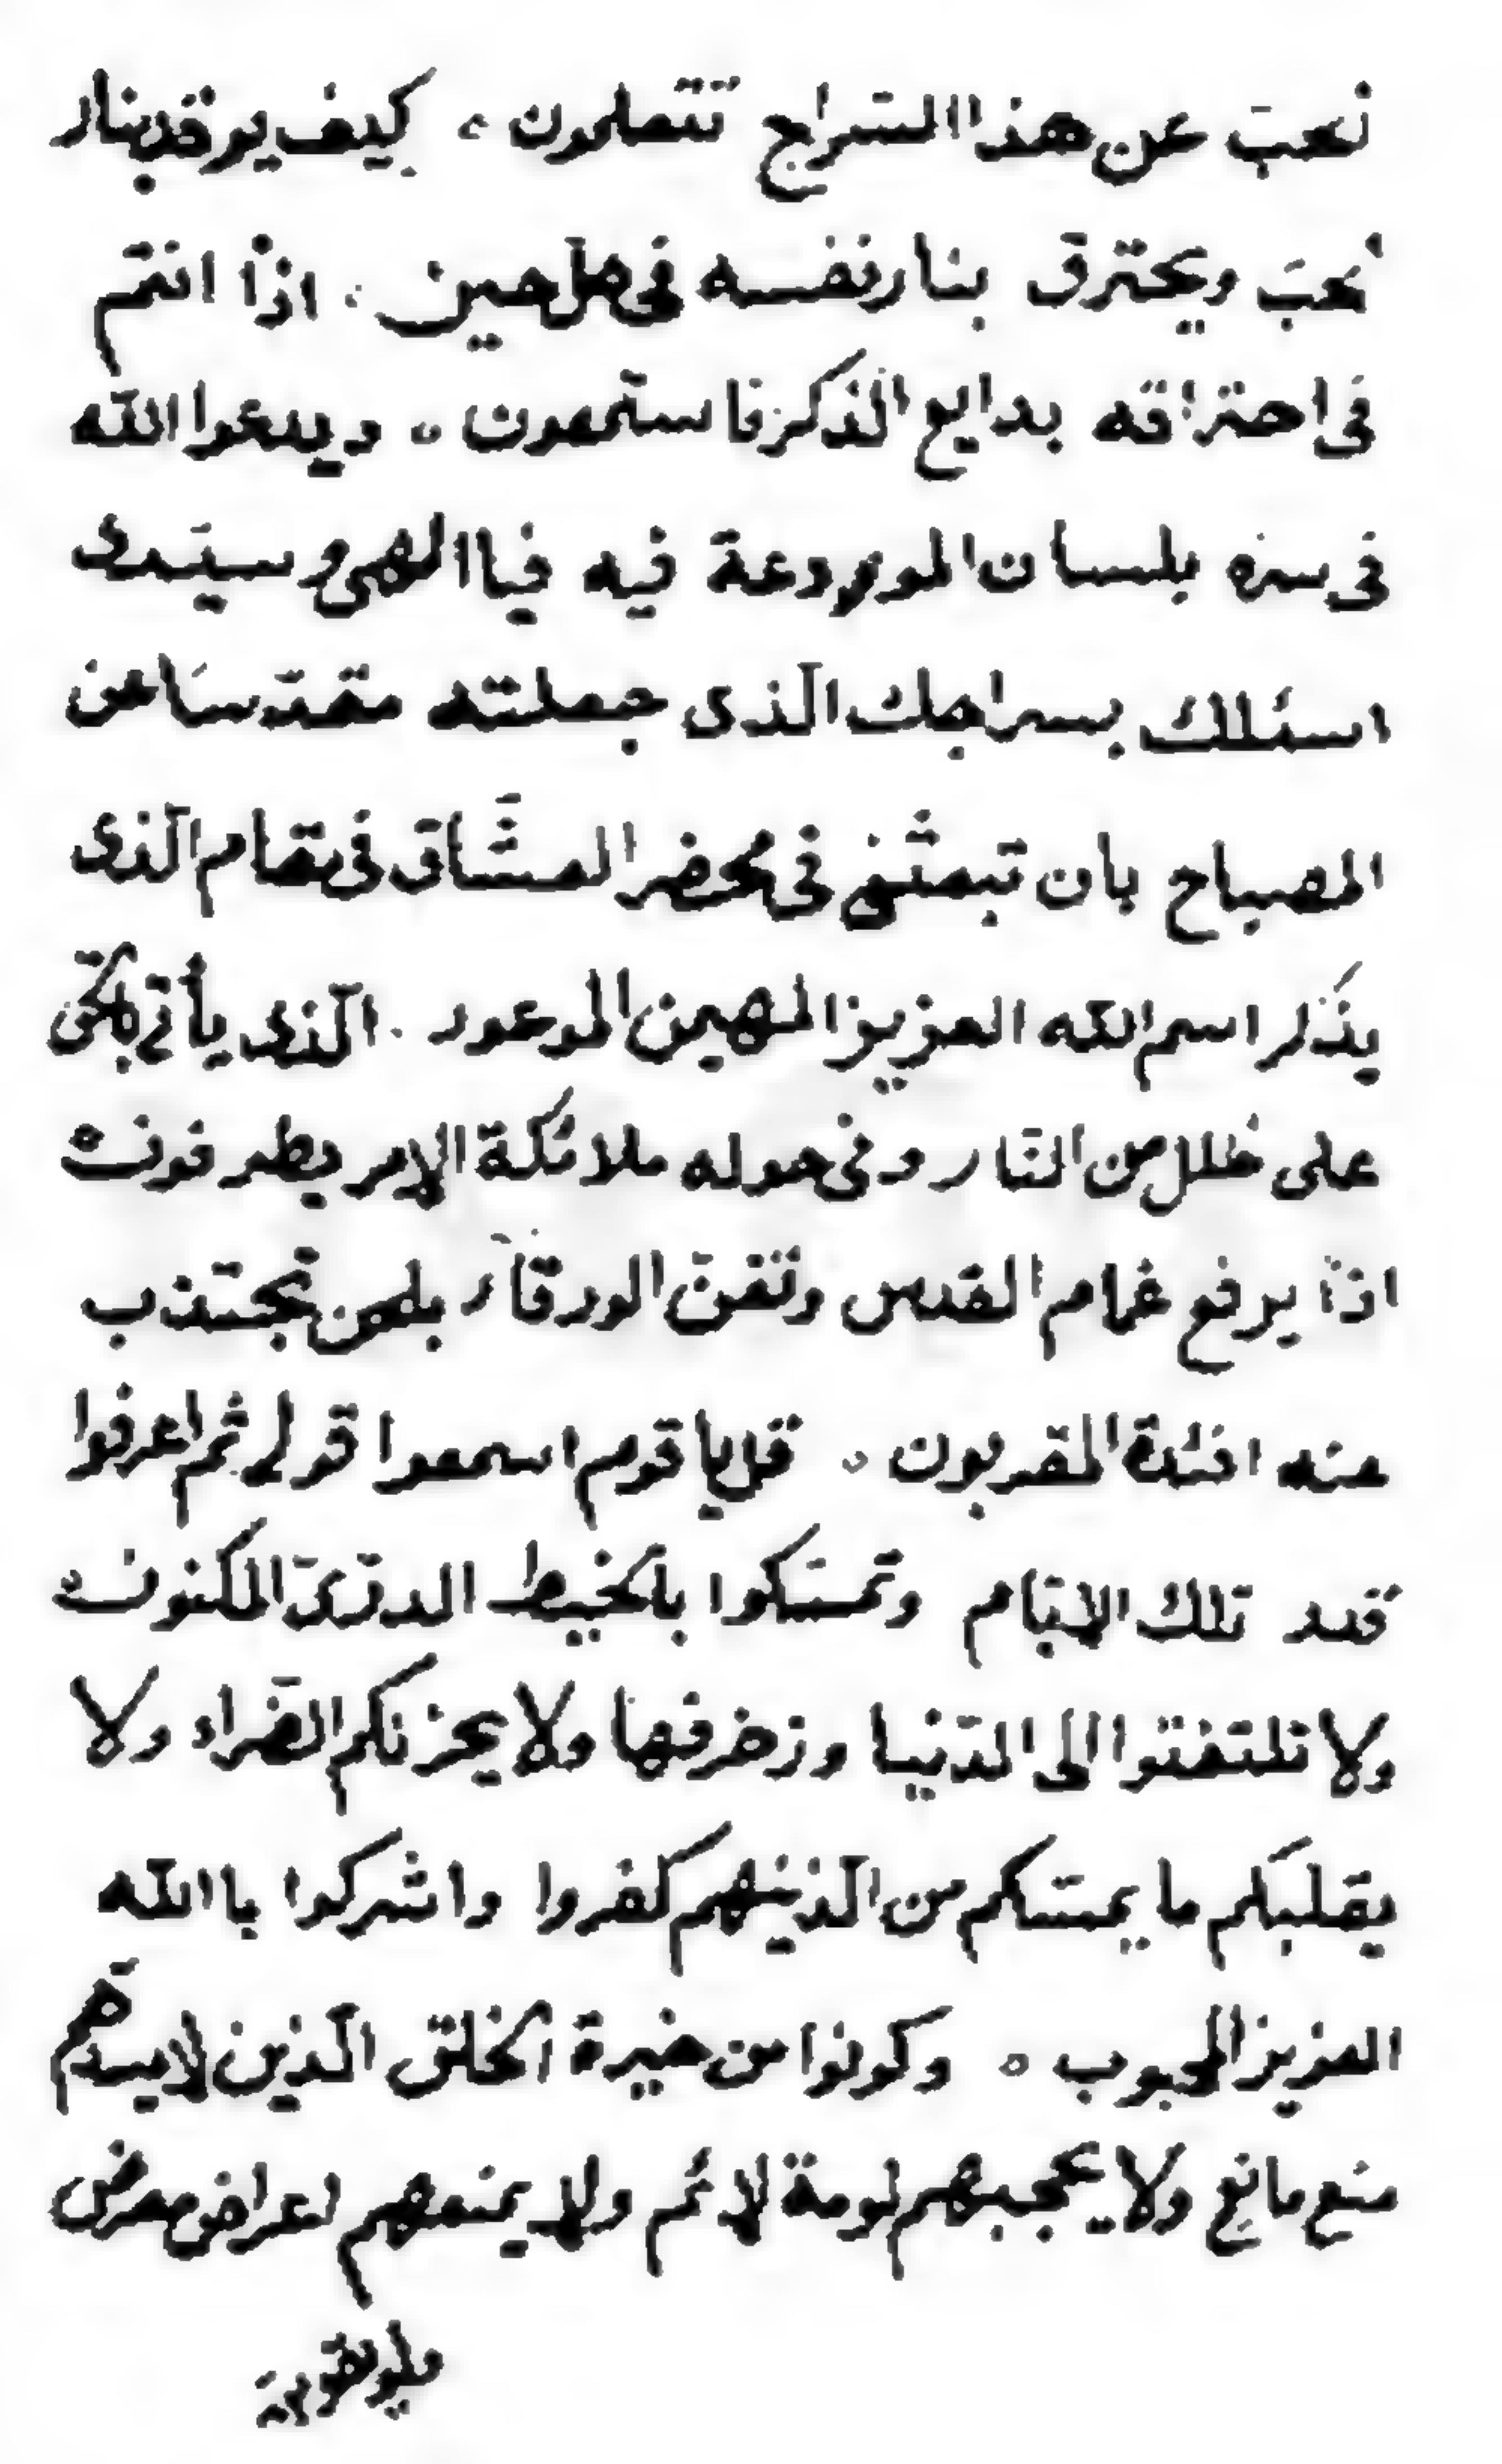 الحبّ عن هذا السّراج تتعلمون ، كيف يوقد بنار
الحبّ ويحترق بنار نفسه في كل حين . اذاً انتم
في احتراقه بدايع الذكر فاستمعون ، ويدعوا الله
في سره بلسان المودعة فيه فيا الهي وسيّدى
اسئلك بسراجك الّذى جعلته مقدّسا عن
المصباح بان تبعثنى في محضر العشّاق في مقام الّذى
يذكر اسم الله العزيز المهيمن الموعود . الّذى يأتى بالحقّ
على ظلل من النّار وفي حوله ملائكة الامر يطوفون
اذاً يرفع غمام القدس وتغنّ الورقآء بلحن تجتذب
عنه افئدة المقربون . قل يا قوم اسمعوا قولى ثم اعرفوا
قدر تلك الايّام وتمسّكوا بالخيط الدرّىّ المكنون
ولا تلتفتوا الى الدّنيا وزخرفها ولا يحزنكم الضّراء ولا
يقلبكم ما يمسّكم من الّذينهم كفروا واشركوا باالله
العزيز المحبوب . وكونوا من خيرة الخلق الّذين لا يسدّهم
منع مانع ولا يحجبهم لومة لائم ولا يمنعهم اعراض معرض